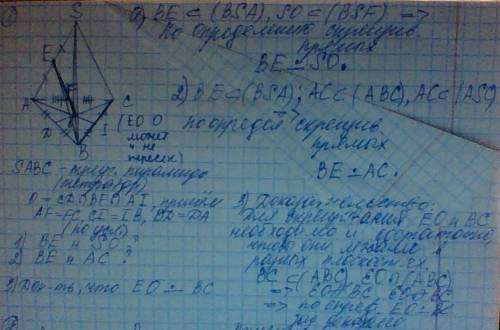 ①
S
E
A
F
C
D
O
I
B
1) BE ⊂ (BSA), SO ⊂ (BSF) =>
По определению скрещив.
прямых
BE ∸ SO.
2) BE ⊂ (BSA); AC ⊂ (ABC), AC ⊂ (ASC)
по определ скрещив
прямых
BE ∸ AC.
(EO O
может
и не
пересек)
SABC - треуг. пирамида
(тетраэдр)
O = CD ∩ BF ∩ AI, причём
AF=FC, CI=IB, BD=DA
(по усл)
1) BE и SO ?
2) BE и AC ?
3) Док-ть, что EO ∸ BC
3) Доказательство:
Для скрещивания EO и BC
необходимо и достаточно,
чтобы они лежали в
разных плоскостях
BC ⊂ (ABC) EO ∩ (ABC)
=> EO ∩ BC, EO BC
=> по опред. EO ∸ BC